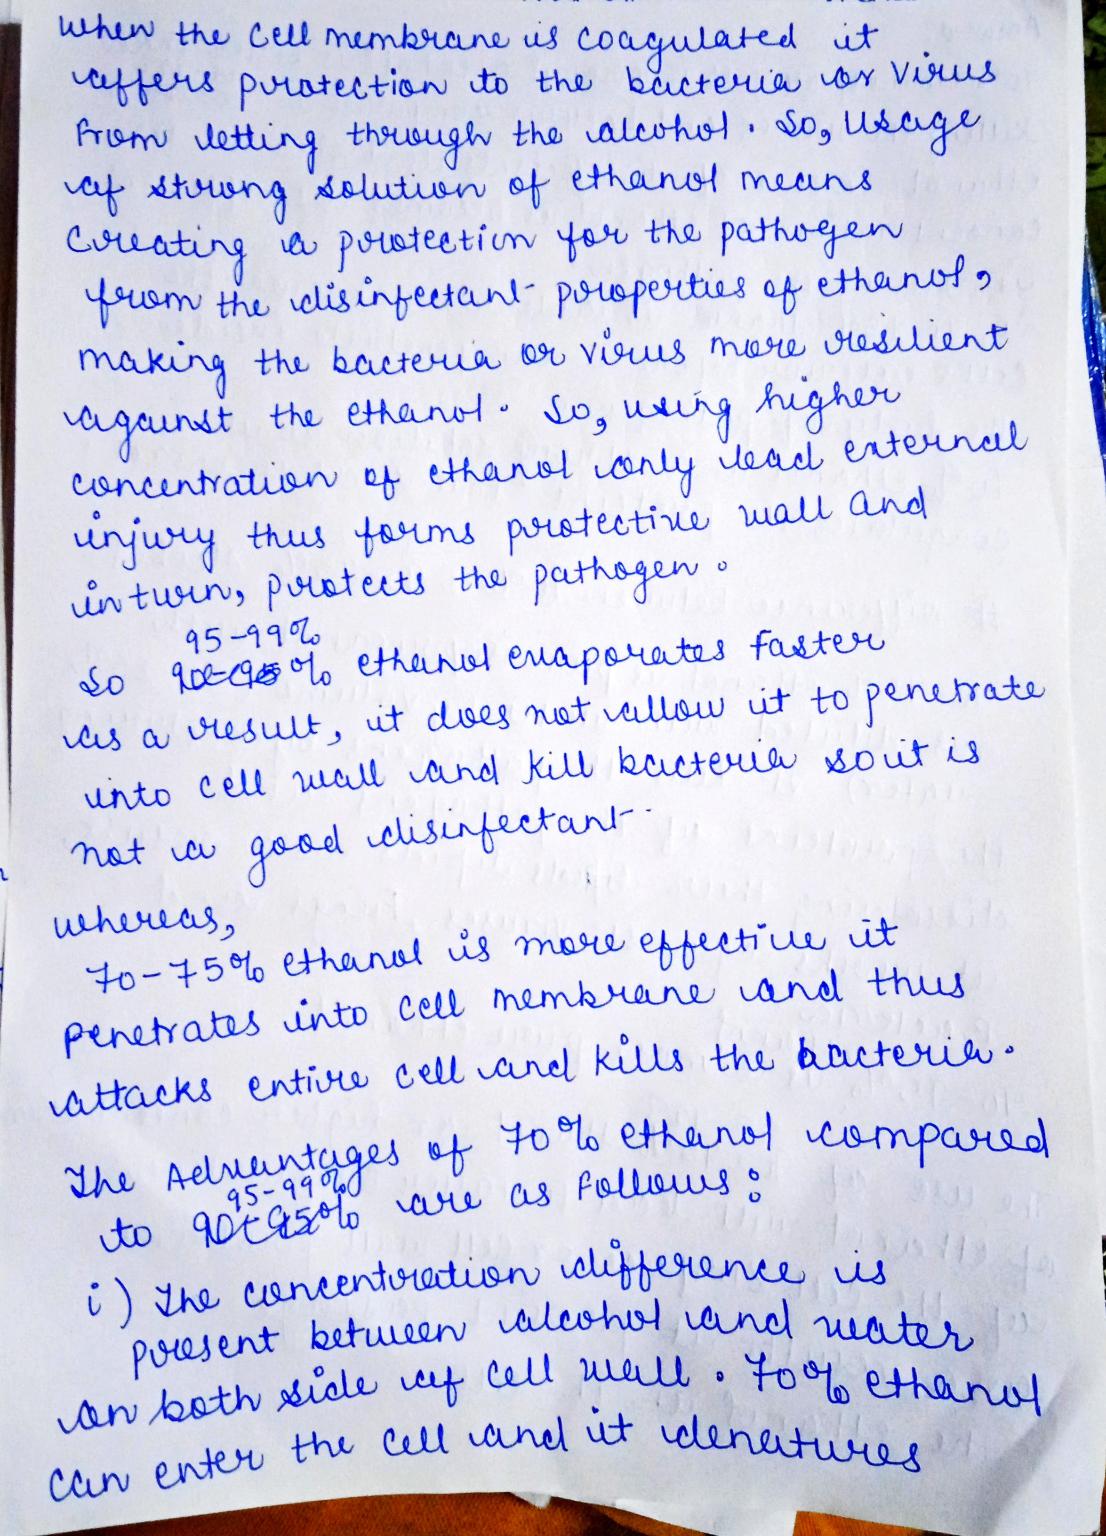 when the cell membrane is coagulated it
offers protection to the bacteria or virus
from letting through the alcohol. So, usage
of strong solution of ethanol means
creating a protection for the pathogen
from the disinfectant properties of ethanol,
making the bacteria or virus more resilient
against the ethanol. So, using higher
concentration of ethanol only lead external
injury thus forms protective wall and
in turn, protects the pathogen.
95-99%
So % ethanol evaporates faster
as a result, it does not allow it to penetrate
into cell wall and kill bacteria so it is
not a good disinfectant.
whereas,
70-75% ethanol is more effective it
penetrates into cell membrane and thus
attacks entire cell and kills the bacteria.
The Advantages of 70% ethanol compared
95-99%
to 90-95% are as follows:
i) The concentration difference is
present between alcohol and water
on both side of cell wall. 70% ethanol
can enter the cell and it denatures